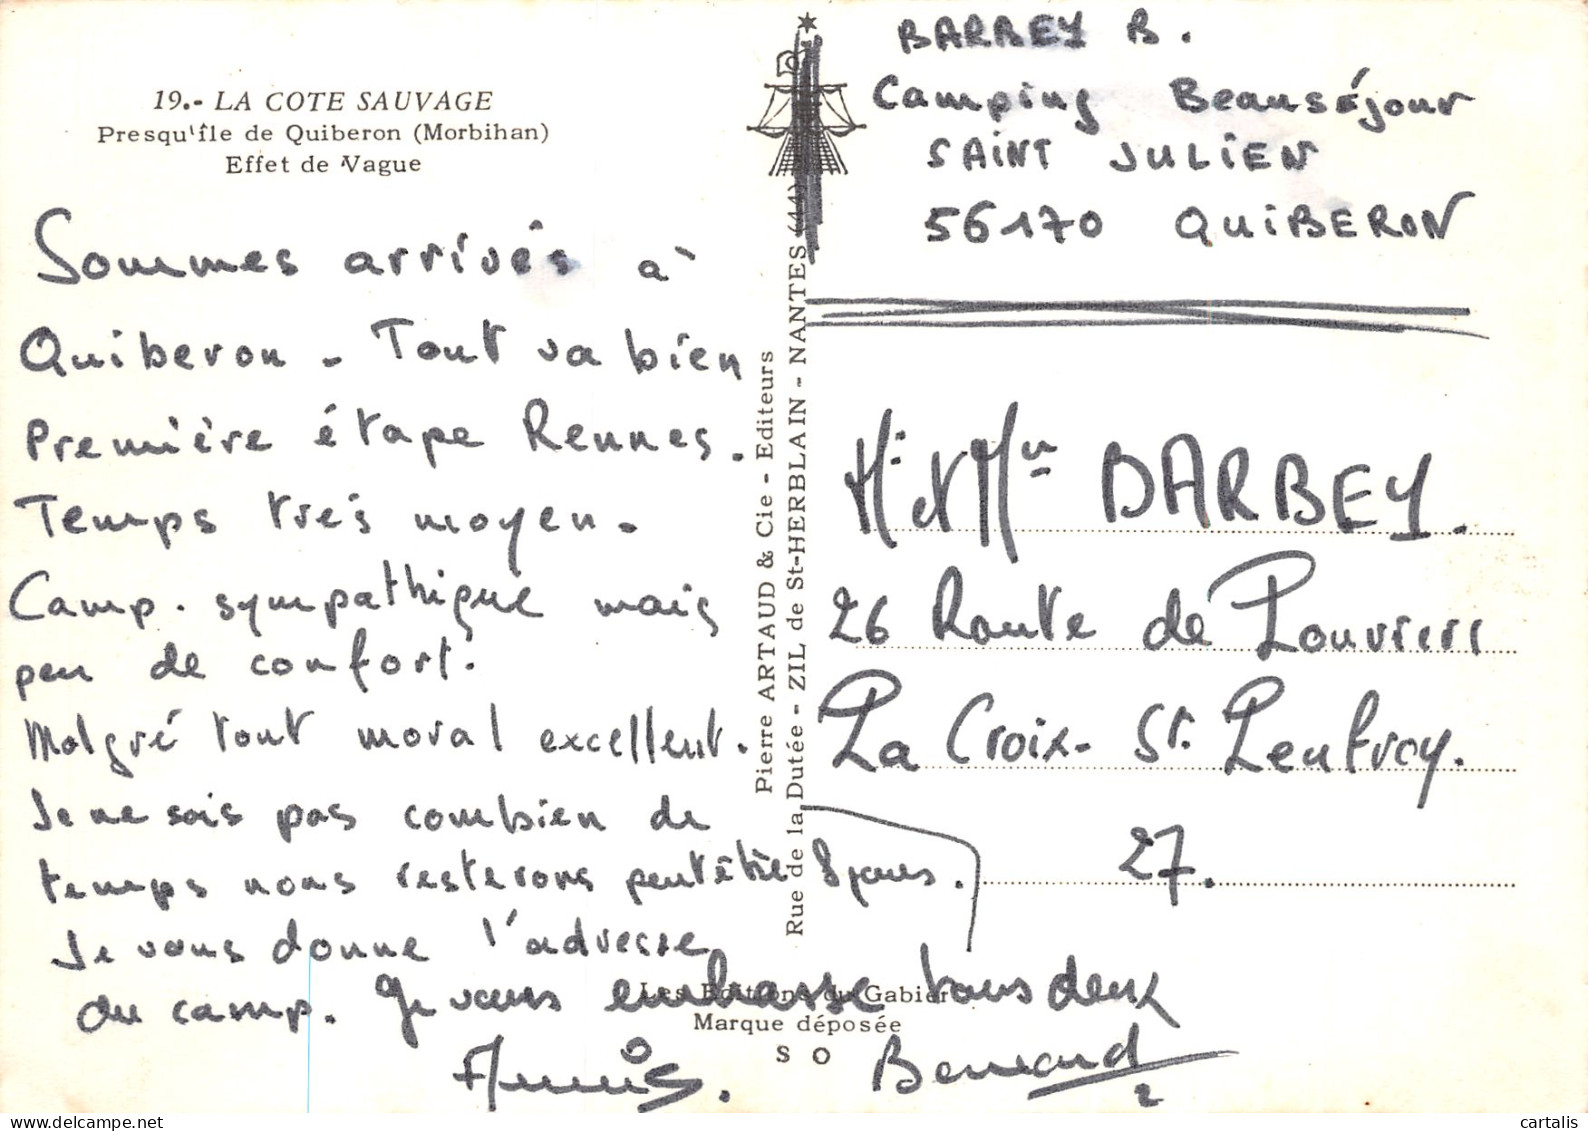 19.- LA COTE SAUVAGE
Presqu'île de Quiberon (Morbihan)
Effet de Vague
Sommes arrivés à
Quiberon - Tout va bien
Première étape Rennes.
Temps très moyen.
Camp. sympathique mais
peu de confort.
Malgré tout moral excellent.
Je ne sais pas combien de
temps nous resterons peut être 8 jours.
Je vous donne l'adresse
du camp. Je vous embrasse tous deux
Bernard
Pierre ARTAUD & Cie - Editeurs
Rue de la Dutée - ZIL de St-HERBLAIN - NANTES (44)
Les Editions du Gabier
Marque déposée
S O
BARBEY B.
Camping Beauséjour
SAINT JULIEN
56170 QUIBERON
Mr et Mme BARBEY.
26 Route de Louviers
La Croix- St. Leufroy.
27.
cartalis